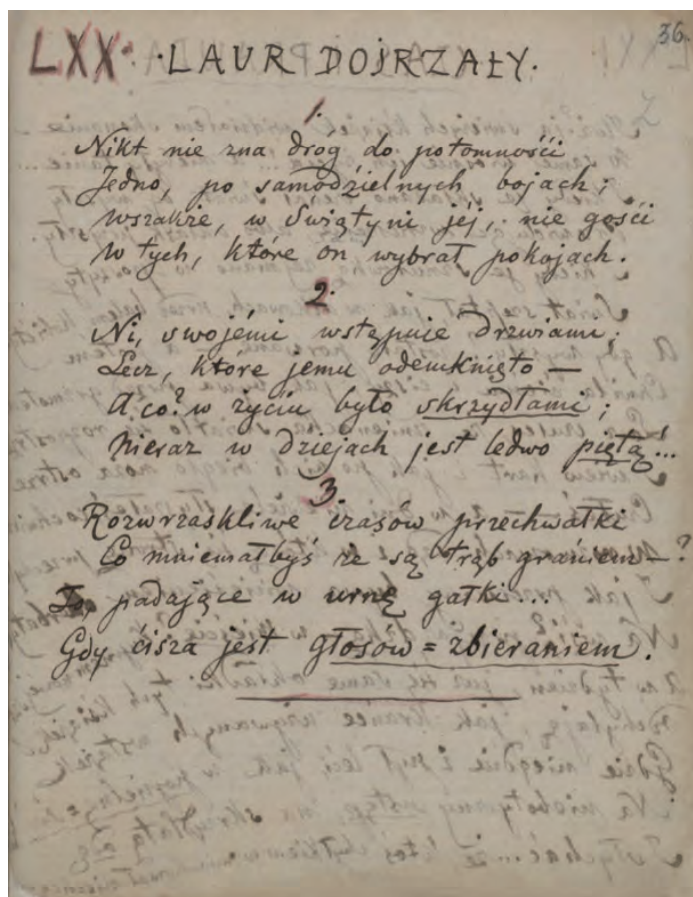 36
LXX · LAUR DOJRZAŁY ·
1.
Nikt nie zna dróg do potomności
Jedno, po samodzielnych bojach;
wszakże, w Świątyni jéj, nie gości
W tych, które on wybrał pokojach.
2.
Ni, swojémi wstępuje drzwiami;
Lecz, które jemu odemknięto —
A co? w życiu było skrzydłami;
Nieraz w dziejach jest ledwo piętą!...
3.
Rozwrzaskliwe czasów przechwałki
Co mniemałbyś że są trąb graniem — ?
To, padające w urnę gałki...
Gdy cisza jest głosów = zbieraniem.